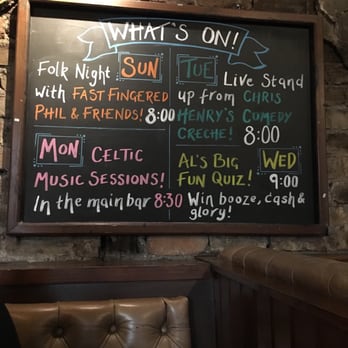 WHAT'S ON!
Folk Night SUN
with FAST FINGERED
PHIL & FRIENDS! 8:00
TUE Live Stand
up from CHRIS
HENRY'S COMEDY
CRECHE! 8:00
MON CELTIC
MUSIC SESSIONS!
In the main bar 8:30
AL'S BIG WED
FUN QUIZ! 9:00
Win booze, cash &
glory!